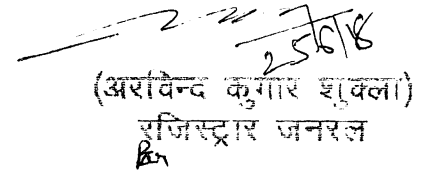 25/6/18
(अरविन्द कुमार शुक्ला)
रजिस्ट्रार जनरल